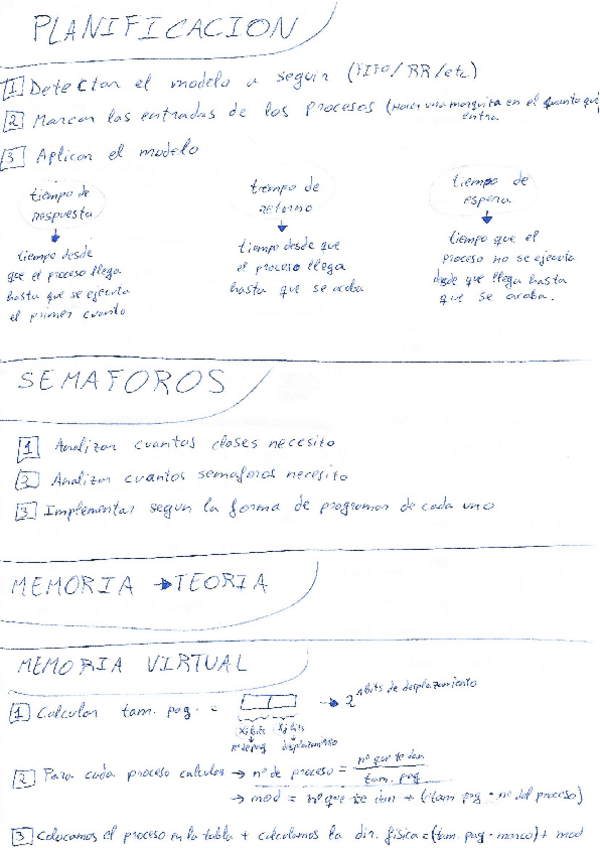 PLANIFICACION
1 Detectar el modelo a seguir (FIFO/RR/etc)
2 Marcar las entradas de los procesos (Hacer una marquita en el quanto que
entra
3 Aplicar el modelo
tiempo de
respuesta
tiempo desde
que el proceso llega
hasta que se ejecuta
el primer cuanto
tiempo de
retorno
tiempo desde que
el proceso llega
hasta que se acaba
tiempo de
espera
tiempo que el
proceso no se ejecuta
desde que llega hasta
que se acaba.
SEMAFOROS
1 Analizar cuantas clases necesito
2 Analizar cuantos semaforos necesito
3 Implementar segun la forma de programar de cada uno
MEMORIA → TEORIA
MEMORIA VIRTUAL
1 Calcular tam. pag. = → 2^nbits de desplazamiento
Xi bits Xj bits
nº de pag desplazamiento
2 Para cada proceso calculos → nº de proceso = nº que te dan / tam. pag
→ mod = nº que te dan + (tam pag · nº del proceso)
3 Colocamos el proceso en la tabla + calculamos la dir. física = (tam. pag · marco) + mod